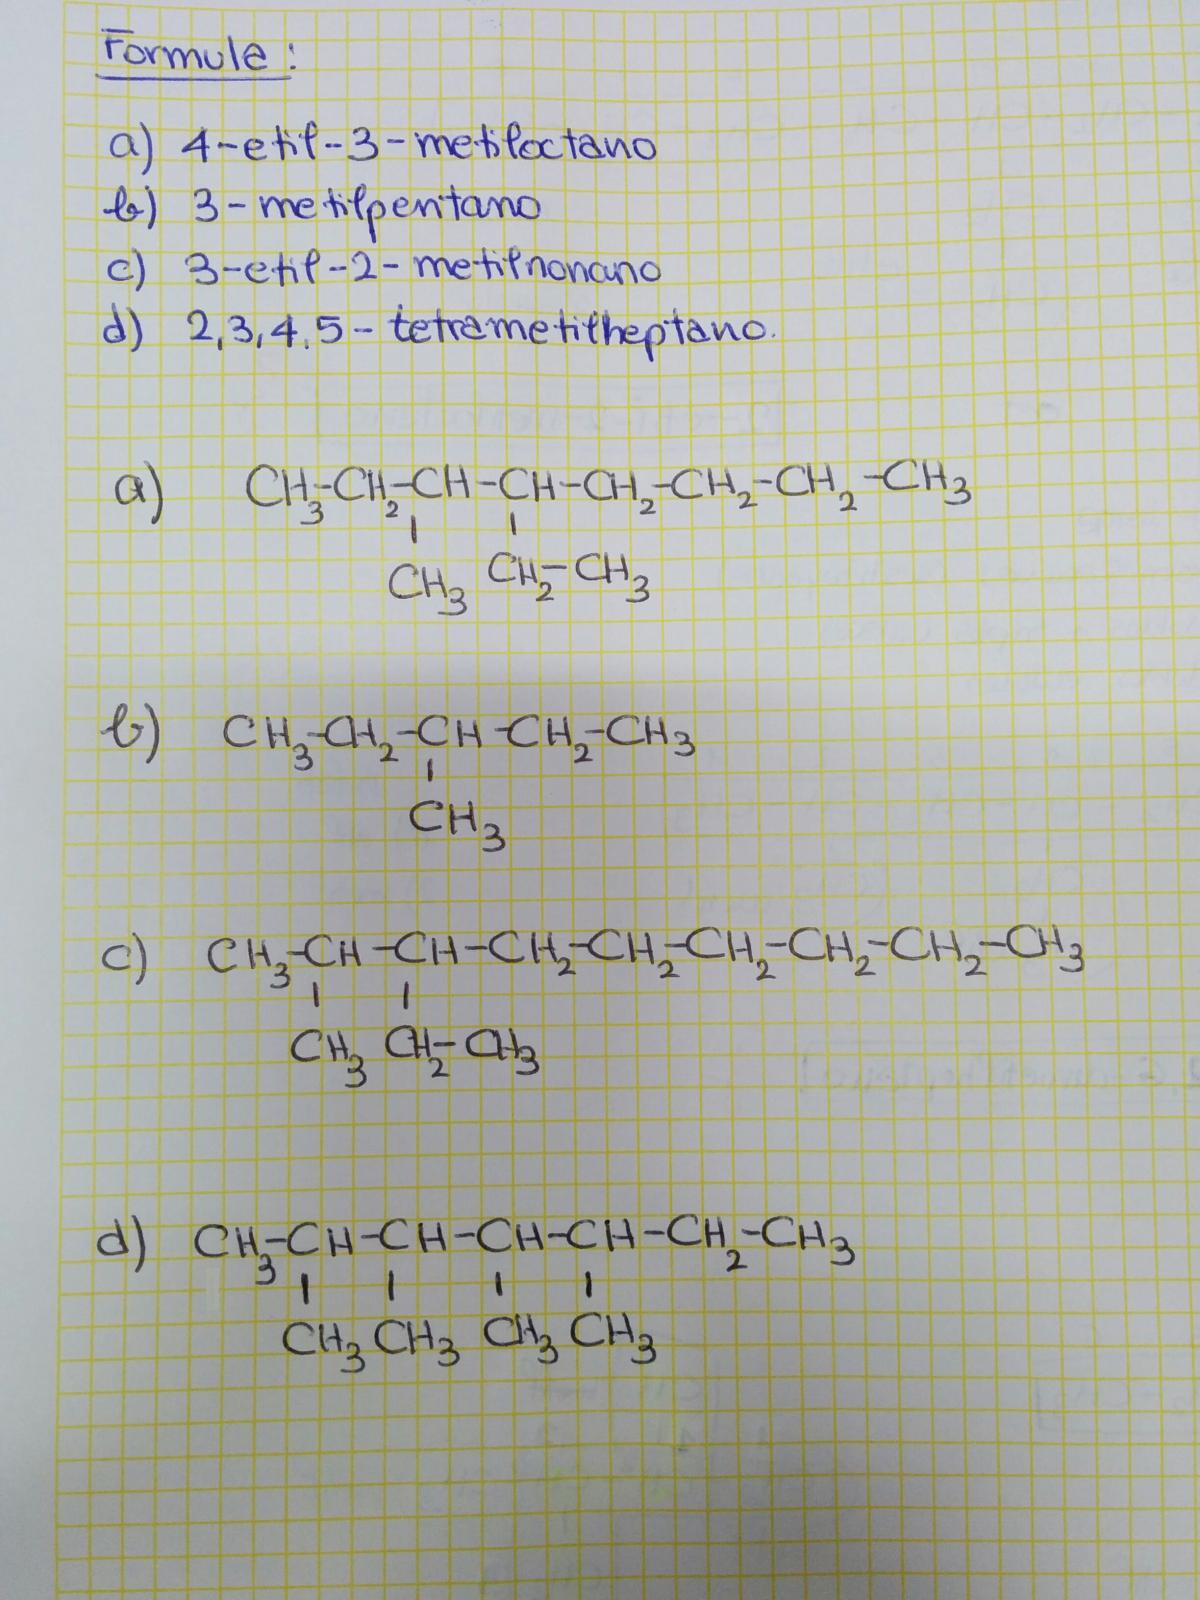 Formule:
a) 4-etil-3-metiloctano
b) 3-metilpentano
c) 3-etil-2-metilnonano
d) 2,3,4,5-tetrametilheptano.
a) CH3-CH2-CH-CH-CH2-CH2-CH2-CH3
CH3 CH2-CH3
b) CH3-CH2-CH-CH2-CH3
CH3
c) CH3-CH-CH-CH2-CH2-CH2-CH2-CH2-CH3
CH3 CH2-CH3
d) CH3-CH-CH-CH-CH-CH2-CH3
CH3 CH3 CH3 CH3